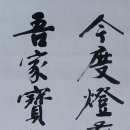 今度燈
吾家寶